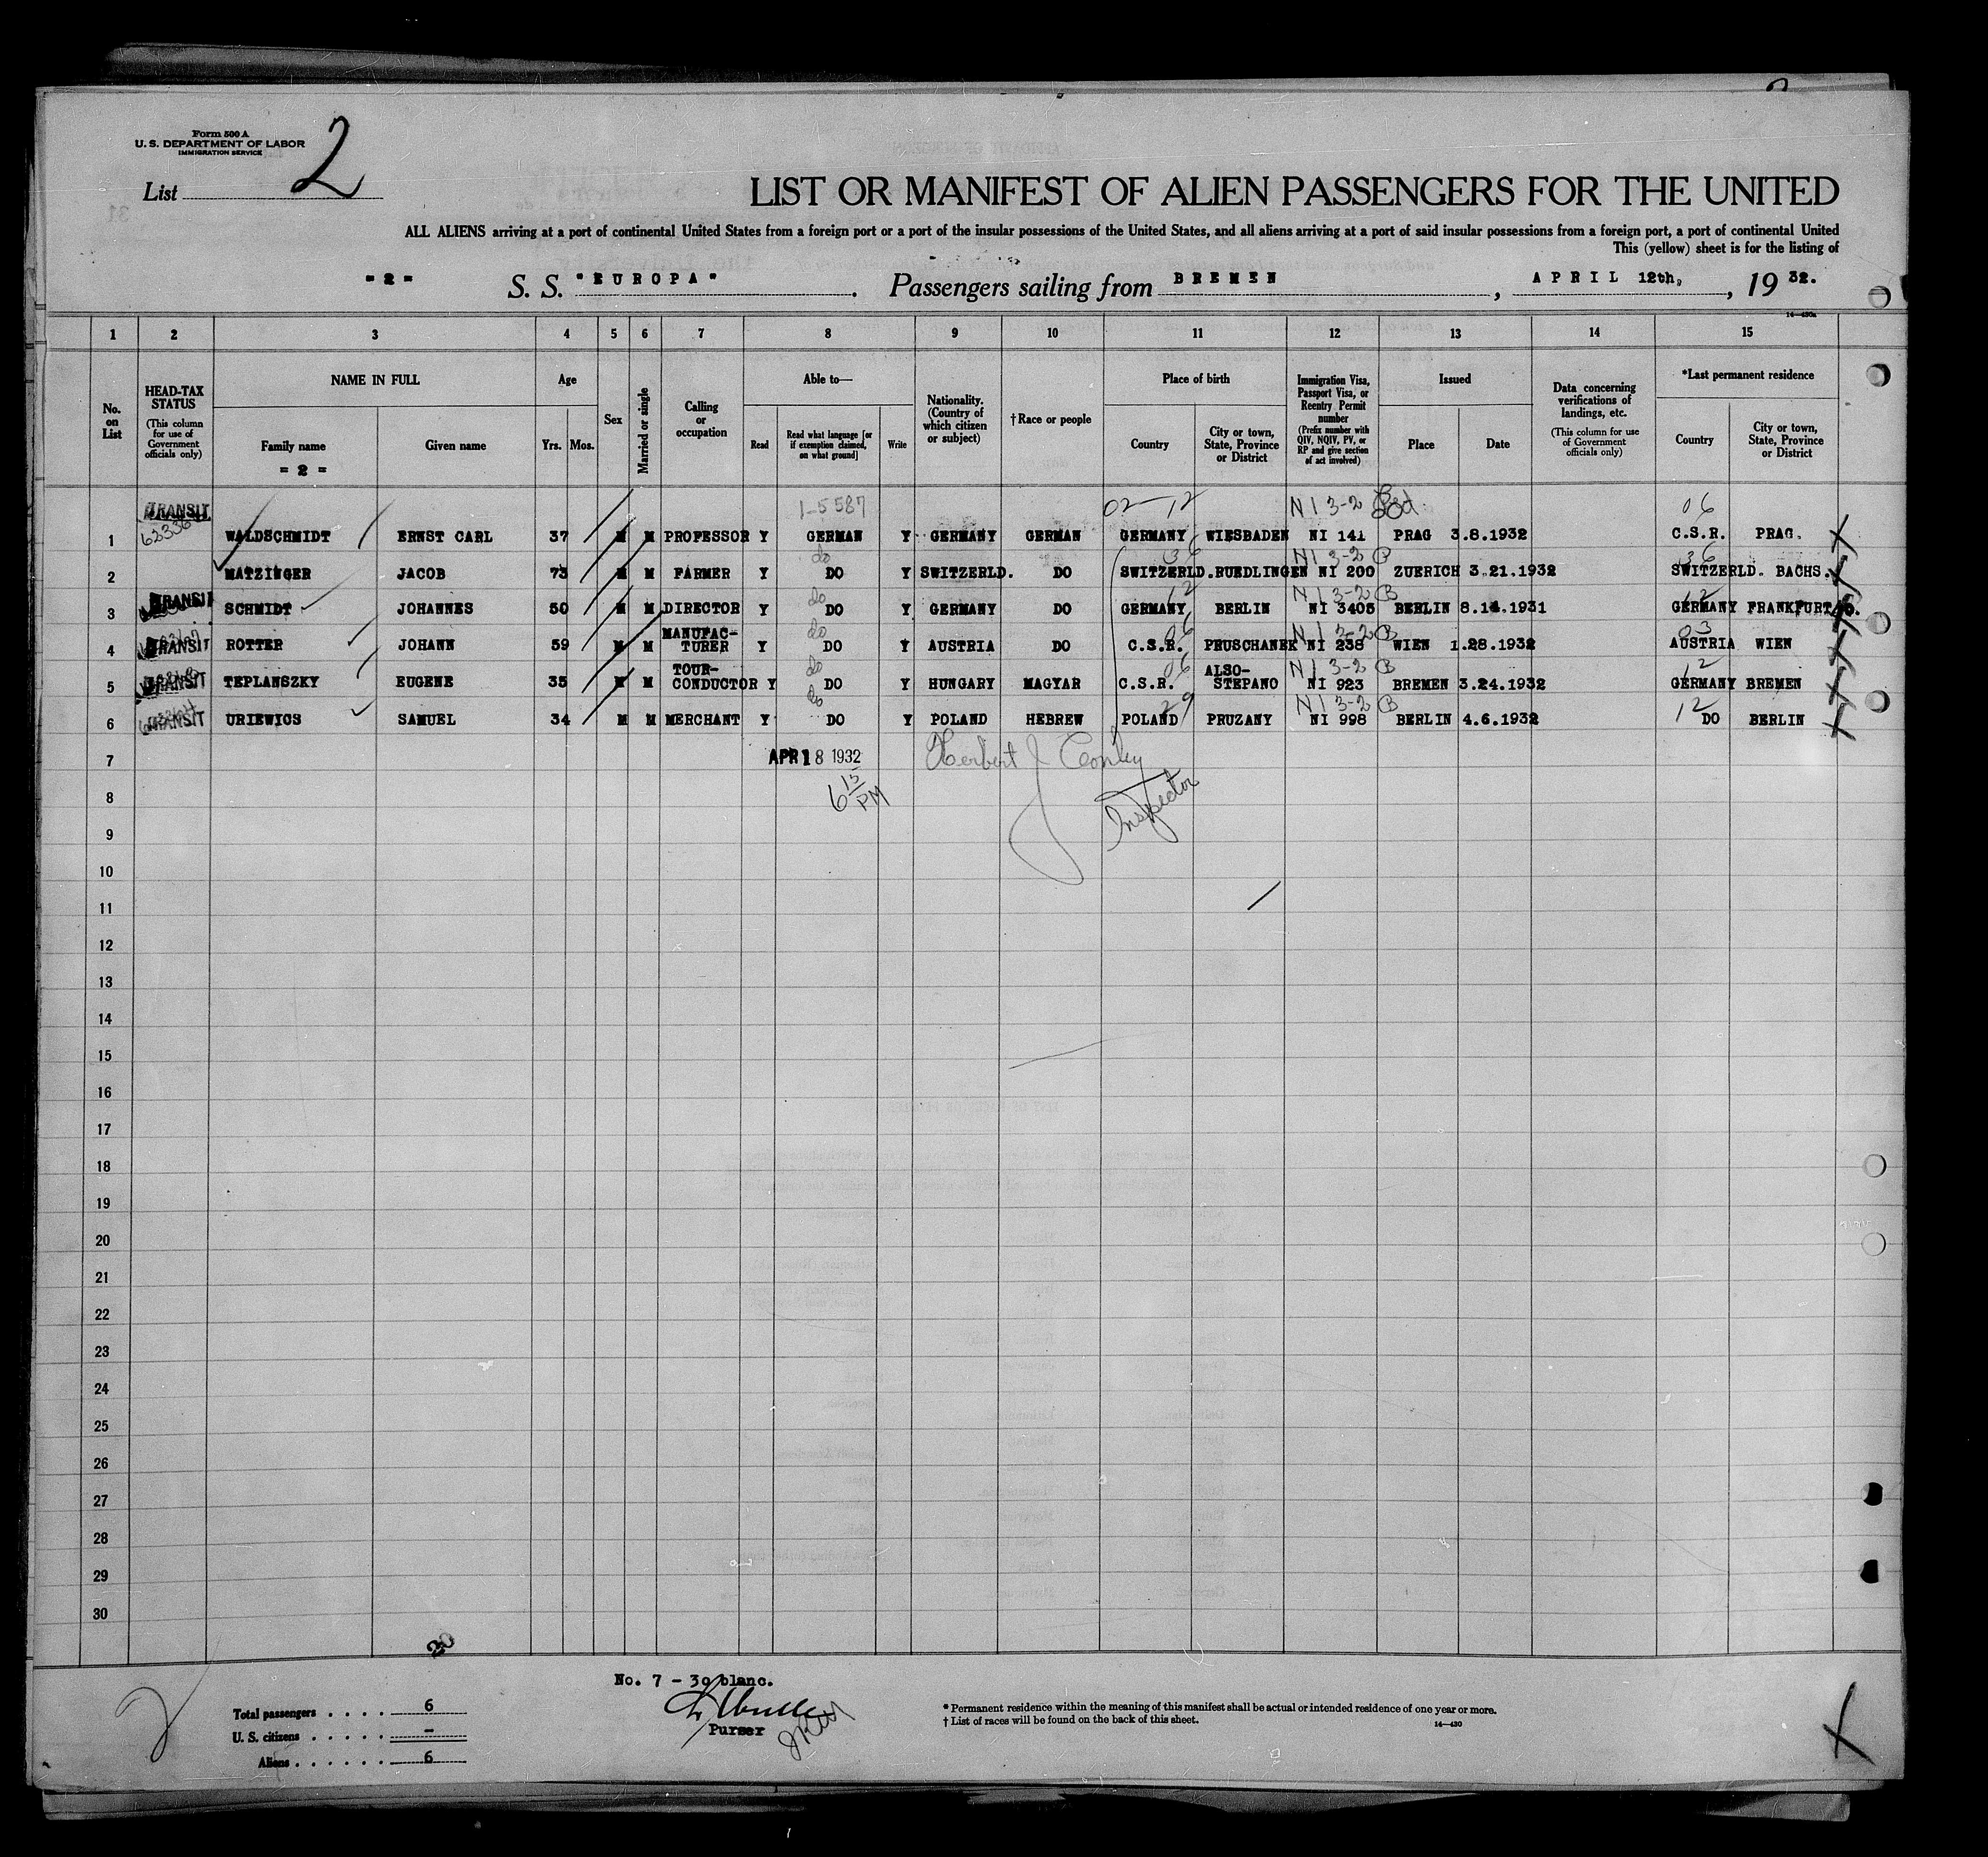 Form 500 A
U. S. DEPARTMENT OF LABOR
IMMIGRATION SERVICE
List 2
LIST OR MANIFEST OF ALIEN PASSENGERS FOR THE UNITED
ALL ALIENS arriving at a port of continental United States from a foreign port or a port of the insular possessions of the United States, and all aliens arriving at a port of said insular possessions from a foreign port, a port of continental United
This (yellow) sheet is for the listing of
= 2 = S. S. "EUROPA". Passengers sailing from BREMEN, APRIL 12th, 19 32.
14—430a
1 2 3 4 5 6 7 8 9 10 11 12 13 14 15
No. on List
HEAD-TAX STATUS (This column for use of Government officials only)
NAME IN FULL
Family name
= 2 =
Given name
Age
Yrs. Mos.
Sex
Married or single
Calling or occupation
Able to—
Read
Read what language [or if exemption claimed, on what ground]
Write
Nationality. (Country of which citizen or subject)
† Race or people
Place of birth
Country
City or town, State, Province or District
Immigration Visa, Passport Visa, or Reentry Permit number (Prefix number with QIV, NQIV, PV, or RP and give section of act involved)
Issued
Place
Date
Data concerning verifications of landings, etc. (This column for use of Government officials only)
*Last permanent residence
Country
City or town, State, Province or District
TRANSIT 1-5587 02-12 NI 3-2 06
1 WALDSCHMIDT ERNST CARL 37 M M PROFESSOR Y GERMAN Y GERMANY GERMAN GERMANY WIESBADEN NI 141 PRAG 3.8.1932 C.S.R. PRAG.
do 36 NI 3-2 B 36
2 MATZINGER JACOB 73 M M FARMER Y DO Y SWITZERLD. DO SWITZERLD. RUEDLINGEN NI 200 ZUERICH 3.21.1932 SWITZERLD. BACHS.
TRANSIT do 12 NI 3-2 B 12
3 SCHMIDT JOHANNES 50 M M DIRECTOR Y DO Y GERMANY DO GERMANY BERLIN NI 3405 BERLIN 8.14.1931 GERMANY FRANKFURT
do 06 NI 3-2 B 03
4 TRANSIT ROTTER JOHANN 59 M M MANUFAC-TURER Y DO Y AUSTRIA DO C.S.R. PRUSCHANEK NI 238 WIEN 1.28.1932 AUSTRIA WIEN
do 06 NI 3-2 B 12
5 TRANSIT TEPLANSZKY EUGENE 35 M M TOUR-CONDUCTOR Y DO Y HUNGARY MAGYAR C.S.R. ALSO-STEPANO NI 923 BREMEN 3.24.1932 GERMANY BREMEN
do 29 NI 3-2 B 12
6 TRANSIT URIEWICS SAMUEL 34 M M MERCHANT Y DO Y POLAND HEBREW POLAND PRUZANY NI 998 BERLIN 4.6.1932 DO BERLIN
7 APR 18 1932 Herbert J Conley
8 6 15 PM Inspector
9
10
11
12
13
14
15
16
17
18
19
20
21
22
23
24
25
26
27
28
29
30
No. 7 - 30 blanc.
Total passengers . . . . 6
U. S. citizens . . . . . —
Aliens . . . . . . 6
Purser
* Permanent residence within the meaning of this manifest shall be actual or intended residence of one year or more.
† List of races will be found on the back of this sheet.
14—430